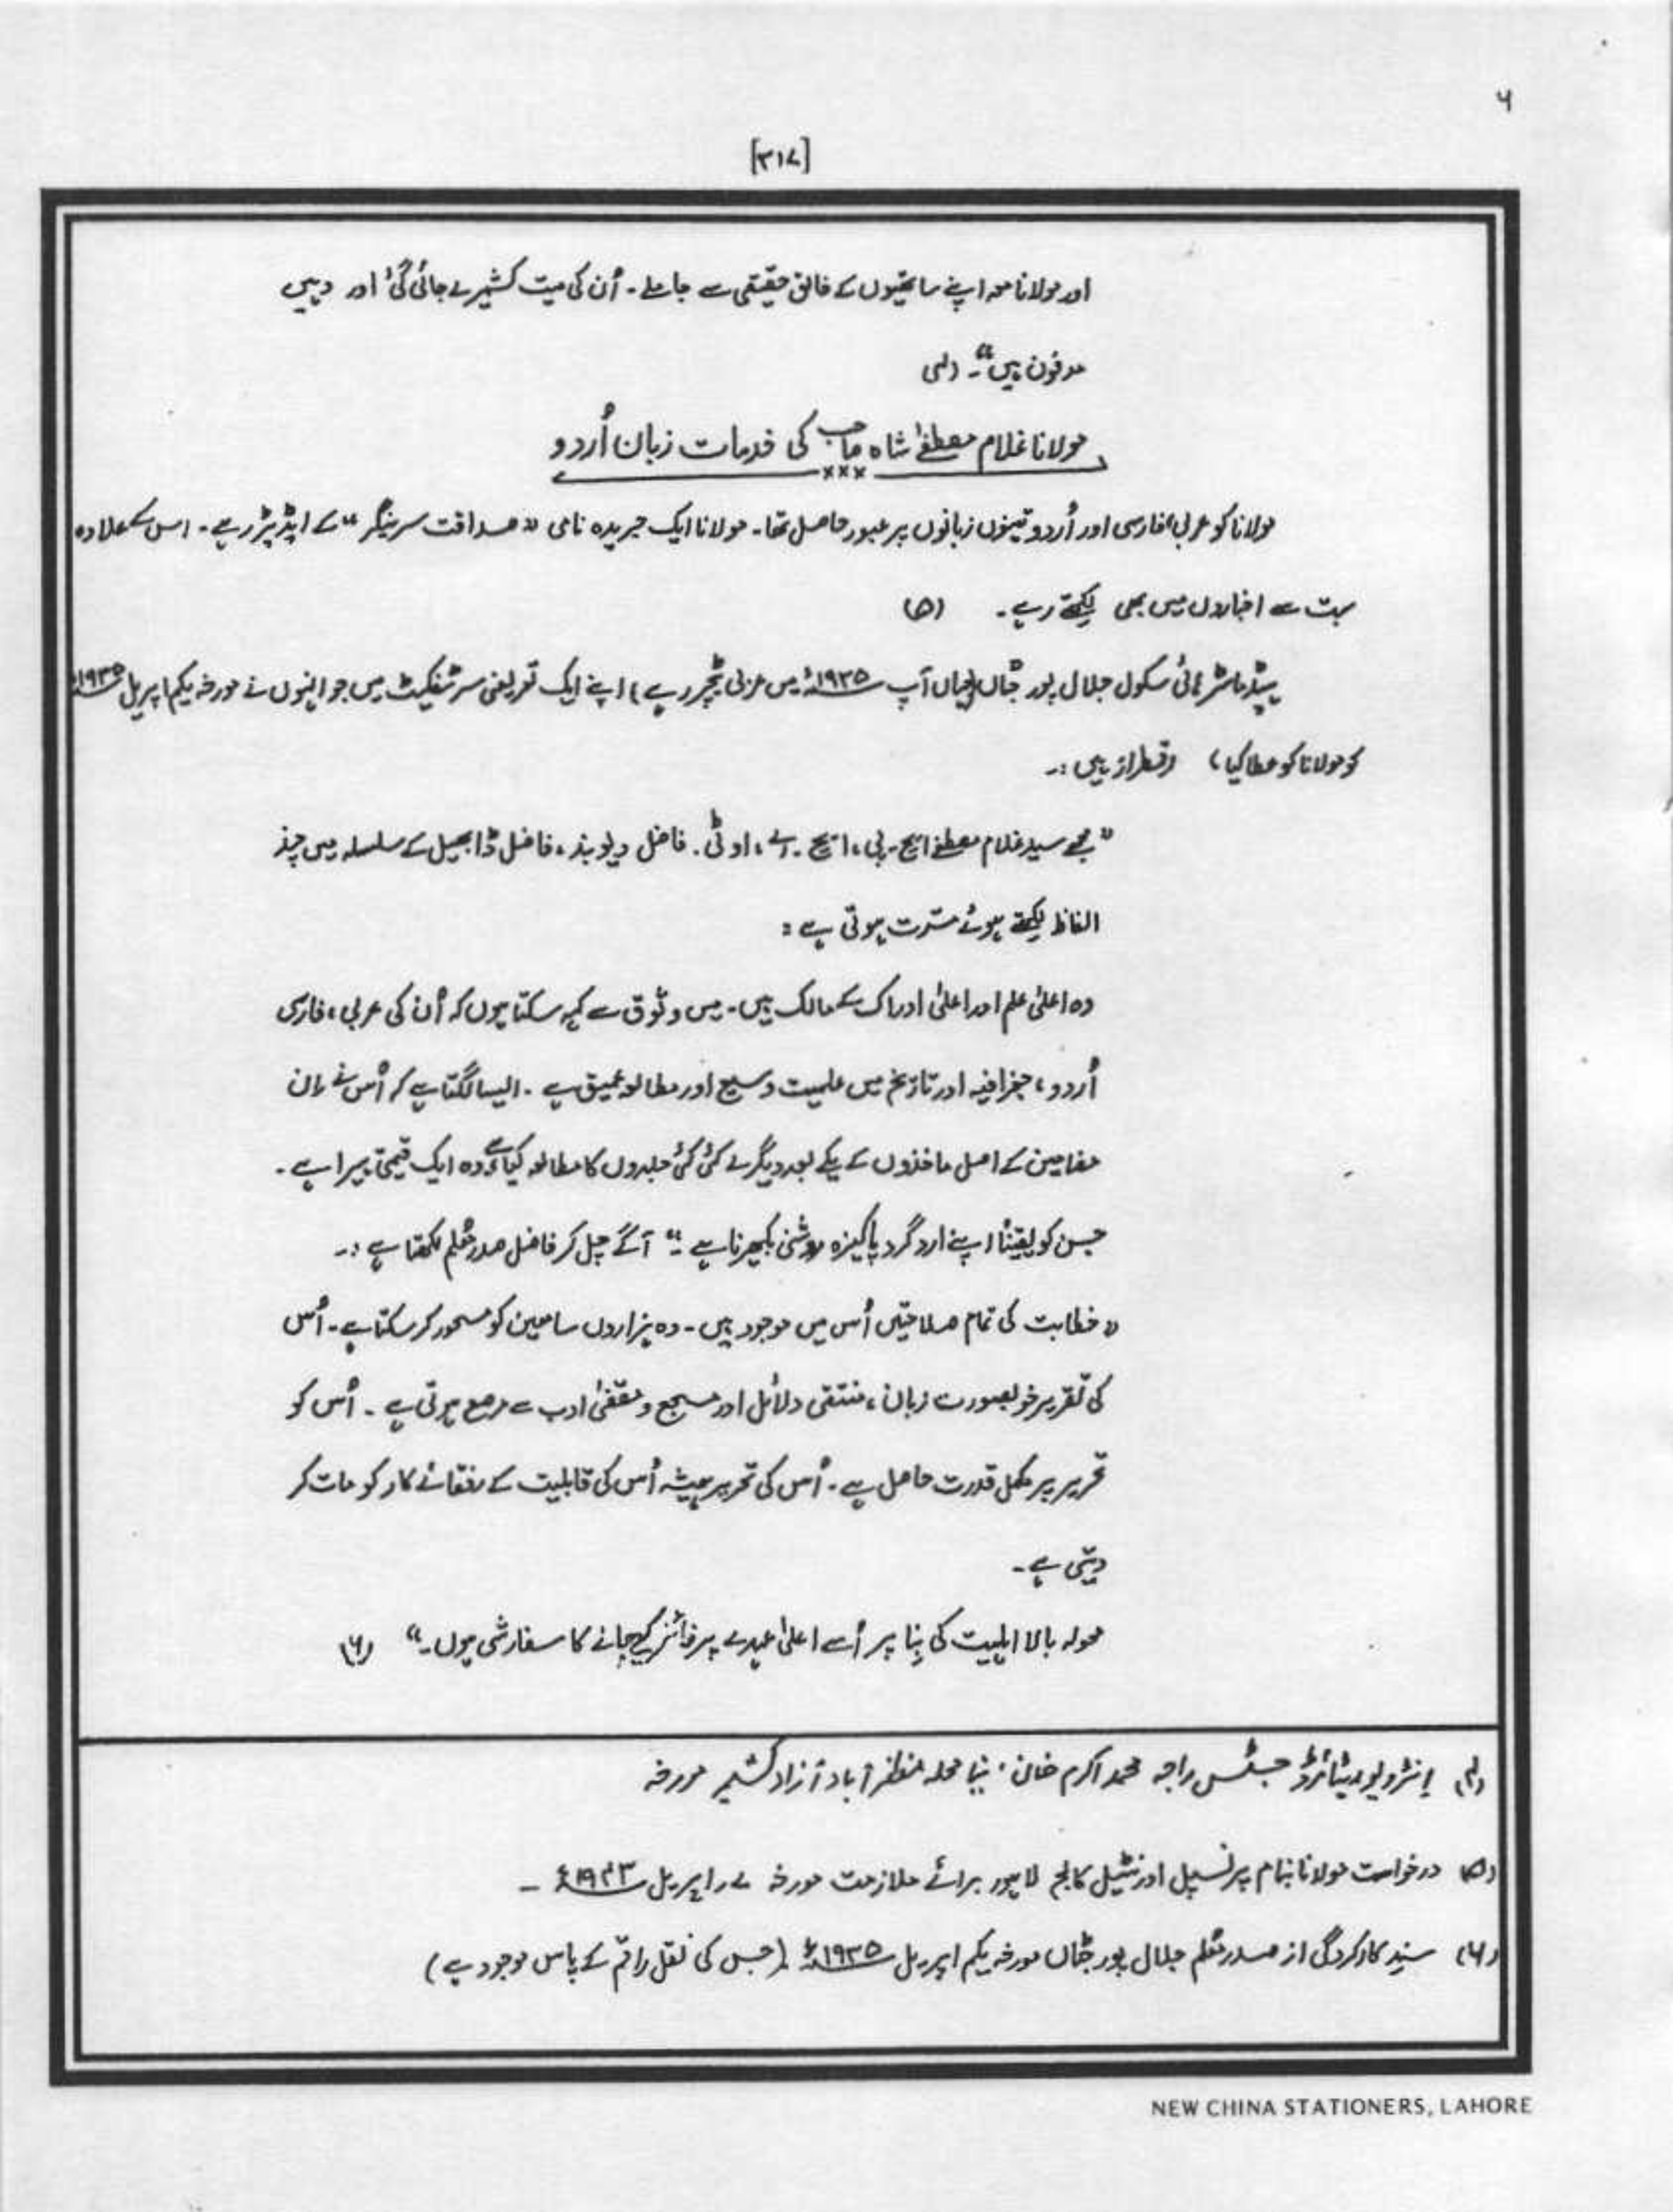 ۶
[۳۱۷]
اور مولانا معہ اپنے ساتھیوں کے خالق حقیقی سے جا ملے۔ اُن کی میت کشمیر لے جائی گئی اور وہیں
مدفون ہیں"۔ (۴)
مولانا غلام مصطفےٰ شاہ صاحب کی خدمات زبان اُردو
×××
مولانا کو عربی، فارسی اور اُردو تینوں زبانوں پر عبور حاصل تھا۔ مولانا ایک جریدہ نامی "صداقت سرینگر" کے ایڈیٹر رہے۔ اس کے علاوہ
بہت سے اخباروں میں بھی لکھتے رہے۔ (۵)
ہیڈ ماسٹر ہائی سکول جلال پور جٹاں (جہاں آپ ۱۹۳۵ء میں عربی ٹیچر رہے) اپنے ایک تعریفی سرٹیفکیٹ میں جو انہوں نے مورخہ یکم اپریل ۱۹۳۵ء
کو مولانا کو عطا کیا) رقمطراز ہیں :۔
"مجھے سید غلام مصطفےٰ ایچ۔پی، ایچ۔اے، او ٹی۔ فاضل دیوبند، فاضل ڈابھیل کے سلسلہ میں چند
الفاظ لکھتے ہوئے مسّرت ہوتی ہے :
وہ اعلیٰ علم اور اعلیٰ ادراک کے مالک ہیں۔ میں وثوق سے کہہ سکتا ہوں کہ اُن کی عربی، فارسی
اُردو، جغرافیہ اور تاریخ میں علمیت وسیع اور مطالعہ عمیق ہے۔ ایسا لگتا ہے کہ اُس نے اِن
مضامین کے اصل ماخذوں کے یکے بعد دیگرے کئی کئی جلدوں کا مطالعہ کیا ہے وہ ایک قیمتی ہیرا ہے۔
جس کو یقیناً اپنے ارد گرد پاکیزہ روشنی بکھیرنا ہے"۔ آگے چل کر فاضل صدر معّلم لکھتا ہے :۔
"خطابت کی تمام صلاحیتیں اُس میں موجود ہیں۔ وہ ہزاروں سامعین کو مسحور کر سکتا ہے۔ اُس
کی تقریر خوبصورت زبان، منتقی دلائل اور مسجع و مقفیٰ ادب سے مرصع ہوتی ہے۔ اُس کو
تحریر پر مکمل قدرت حاصل ہے۔ اُس کی تحریر ہمیشہ اُس کی قابلیت کے رفقائے کار کو مات کر
دیتی ہے۔
محولہ بالا اہلیت کی بِنا پر اُسے اعلیٰ عہدے پر فائز کیے جانے کا سفارشی ہوں۔" (۶)
(۴) اِنٹرویو ریٹائرڈ جسٹس راجہ محمد اکرم خان، نیا محلہ مظفر آباد آزاد کشمیر مورخہ
(۵) درخواست مولانا بنام پرنسپل اورنٹیل کالج لاہور برائے ملازمت مورخہ ۷ر اپریل ۱۹۴۳ء ۔
(۶) سندِ کارکردگی از صدر معّلم جلال پور جٹاں مورخہ یکم اپریل ۱۹۳۵ء (جس کی نقل راقم کے پاس موجود ہے)
NEW CHINA STATIONERS, LAHORE